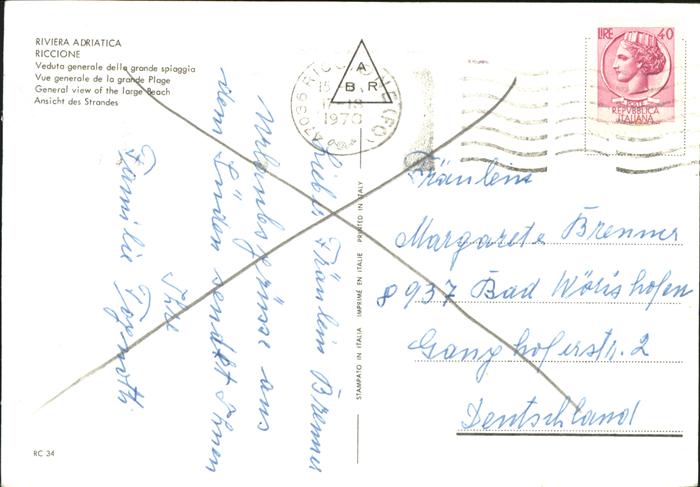 RIVIERA ADRIATICA
RICCIONE
Veduta generale della grande spiaggia
Vue générale de la grande Plage
General view of the large Beach
Ansicht des Strandes
LIRE 40
REPVBBLICA
ITALIANA
47036 RICCIONE (FO)
1970
A
B R
Liebe Fräulein Brenner
Urlaubsgrüsse aus
dem Süden sendet Ihnen
Ihre
Familie
STAMPATO IN ITALIA IMPRIMÉ EN ITALIE PRINTED IN ITALY
Fräulein
Margarete Brenner
8937 Bad Wörishofen
Ganghoferstr. 2
Deutschland
RC 34